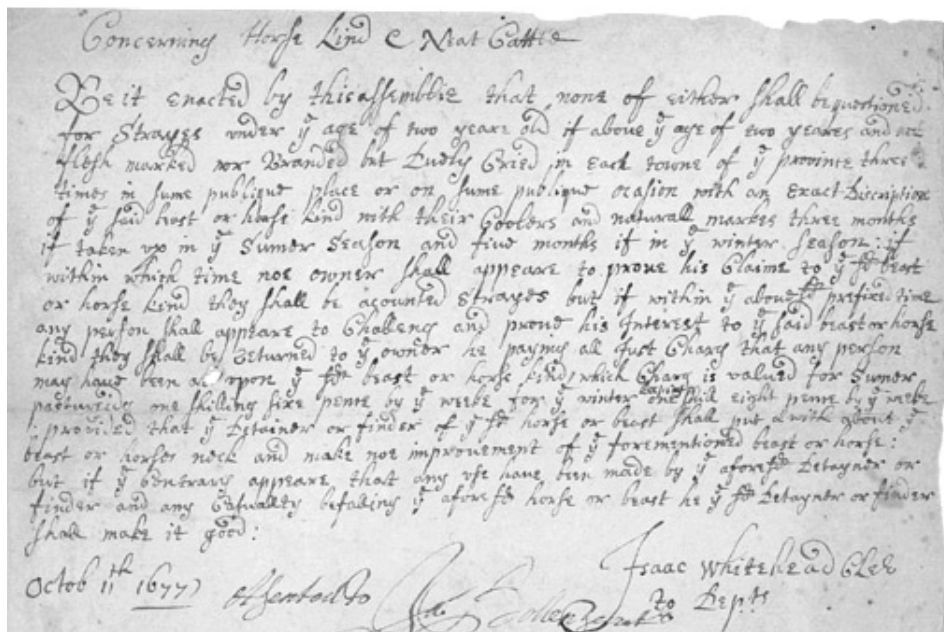 Concerning Horse kind & Neat Cattle
Be it enacted by this assemblie that none of either shall be questioned
for Strayes under yͤ age of two yeare old if above yͤ age of two yeares and not
flesh marked nor Branded but Duely Cried in Each towne of yͤ province three
times in sume publique place or on sume publique ocasion with an Exact Discription
of yͤ said beast or horse kind with their Coolers and naturall markes three months
if taken up in yͤ Sumer Season and five months if in yͤ winter season: if
within which time noe owner shall appeare to prove his Claime to yͤ sd beast
or horse kind they shall be acounted Strayes but if within yͤ above sd prefixed time
any person shall appeare to Challeng and prove his Interest to yͤ said beast or horse
kind they shall be Returned to yͤ owner he paying all Just Charg that any person
may have been at upon yͤ sd beast or horse kind which Charg is valued for Sumer
pastureing one shilling sixe pence by yͤ weeke for yͤ winter one shill eight pence by yͤ weeke
provided that yͤ Detainer or finder of yͤ sd horse or beast shall put a with about yͤ
beast or horses neck and make noe improvement of yͤ forementioned beast or horse:
but if yͤ Contrary appeare that any use have been made by yͤ aforesd Detayner or
finder and any Casuallty befalling yͤ aforesd horse or beast he yͤ sd Detayner or finder
shall make it good:
Isaac Whitehead Cler
Octob 11th 1677
to Depts